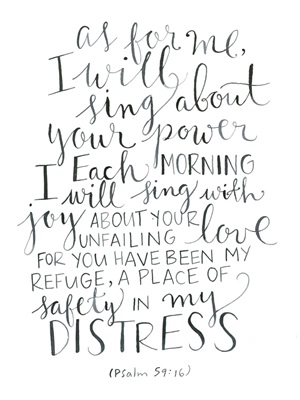 as for me,
I will
sing about
your power
Each MORNING
I will sing with
joy ABOUT YOUR
UNFAILING love
FOR YOU HAVE BEEN MY
REFUGE, A PLACE OF
safety IN my
DISTRESS
(Psalm 59:16)